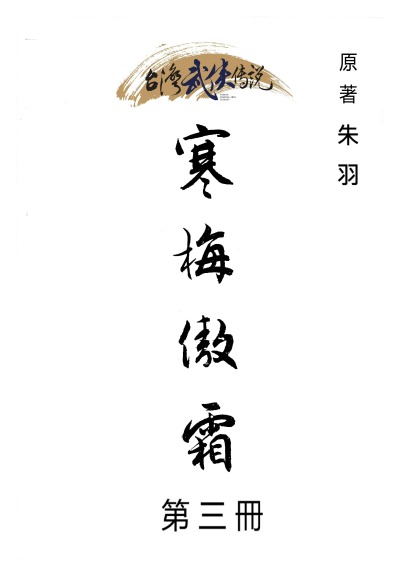 台灣武俠传说
原著朱羽
寒梅傲霜
第三冊